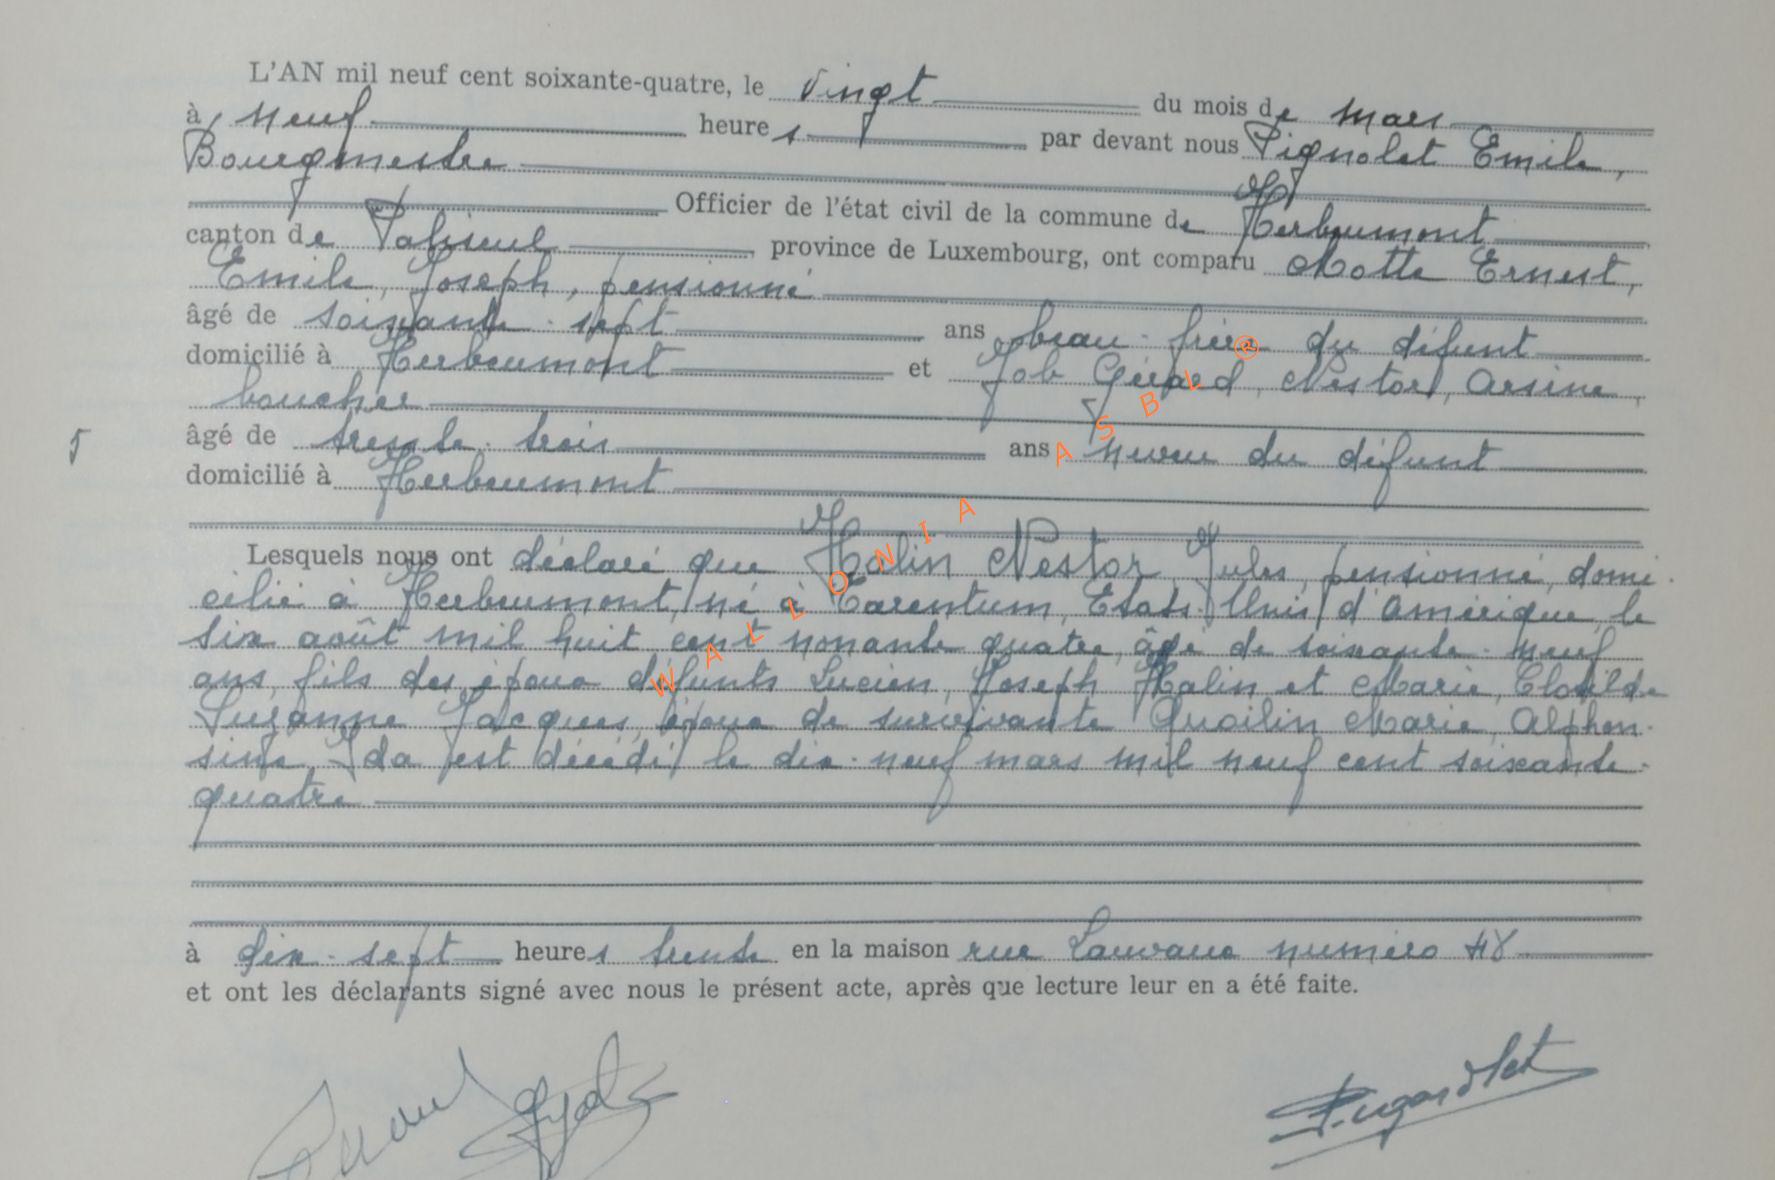 L'AN mil neuf cent soixante-quatre, le vingt du mois de mars
à neuf heures par devant nous Pignolet Emile,
Bourgmestre
Officier de l'état civil de la commune de Herbeumont
canton de Paliseul province de Luxembourg, ont comparu Motte Ernest,
Emile, Joseph, pensionné
âgé de soixante-sept ans beau-frère du défunt
domicilié à Herbeumont et Job Gérard, Nestor, Arsène,
boucher
5
âgé de trente-trois ans neveu du défunt
domicilié à Herbeumont
Lesquels nous ont déclaré que Halin Nestor, Jules, pensionné, domi-
cilié à Herbeumont, né à Tarentum, Etats-Unis d'Amérique, le
six août mil huit cent nonante quatre, âgé de soixante-neuf
ans, fils des époux défunts Lucien, Joseph Halin et Marie, Clotilde
Suzanne Jacques, époux de survivante Quoilin Marie, Alphon-
sine, Ida est décédé le dix-neuf mars mil neuf cent soixante-
quatre
à dix-sept heures trente en la maison rue Lauvaux numéro 48
et ont les déclarants signé avec nous le présent acte, après que lecture leur en a été faite.
WALLONIA ASBL ®